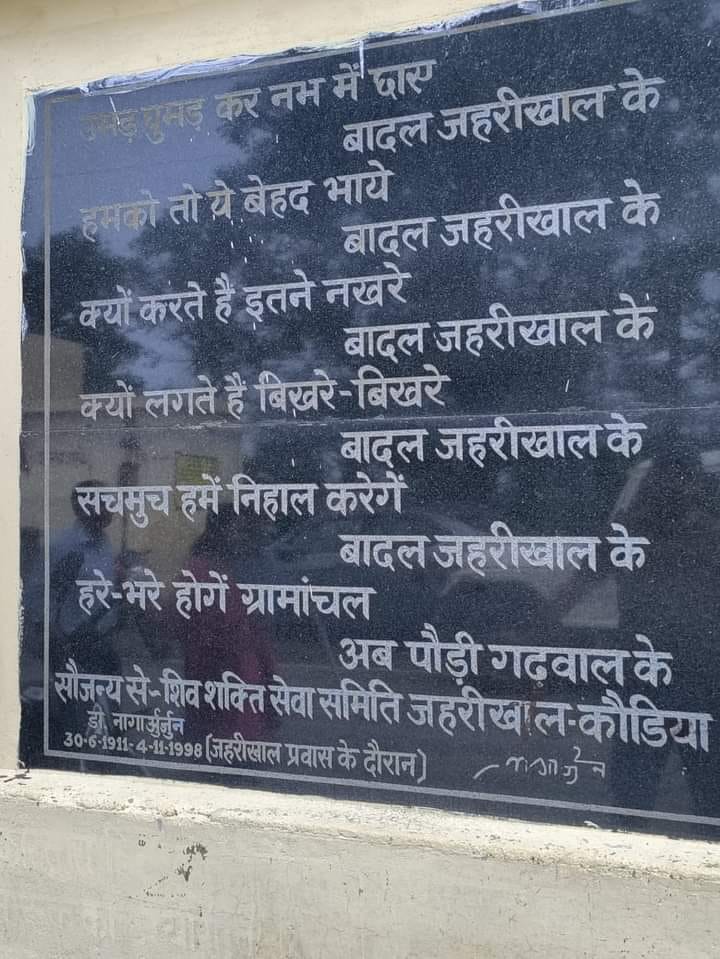 उमड़ घुमड़ कर नभ में छाए
बादल जहरीखाल के
हमको तो ये बेहद भाये
बादल जहरीखाल के
क्यों करते हैं इतने नखरे
बादल जहरीखाल के
क्यों लगते हैं बिखरे-बिखरे
बादल जहरीखाल के
सचमुच हमें निहाल करेगें
बादल जहरीखाल के
हरे-भरे होगें ग्रामांचल
अब पौड़ी गढ़वाल के
सौजन्य से- शिव शक्ति सेवा समिति जहरीखाल-कौडिया
डी. नागार्अुनुन
30-6-1911-4-11-1998 (जहरीखाल प्रवास के दौरान)